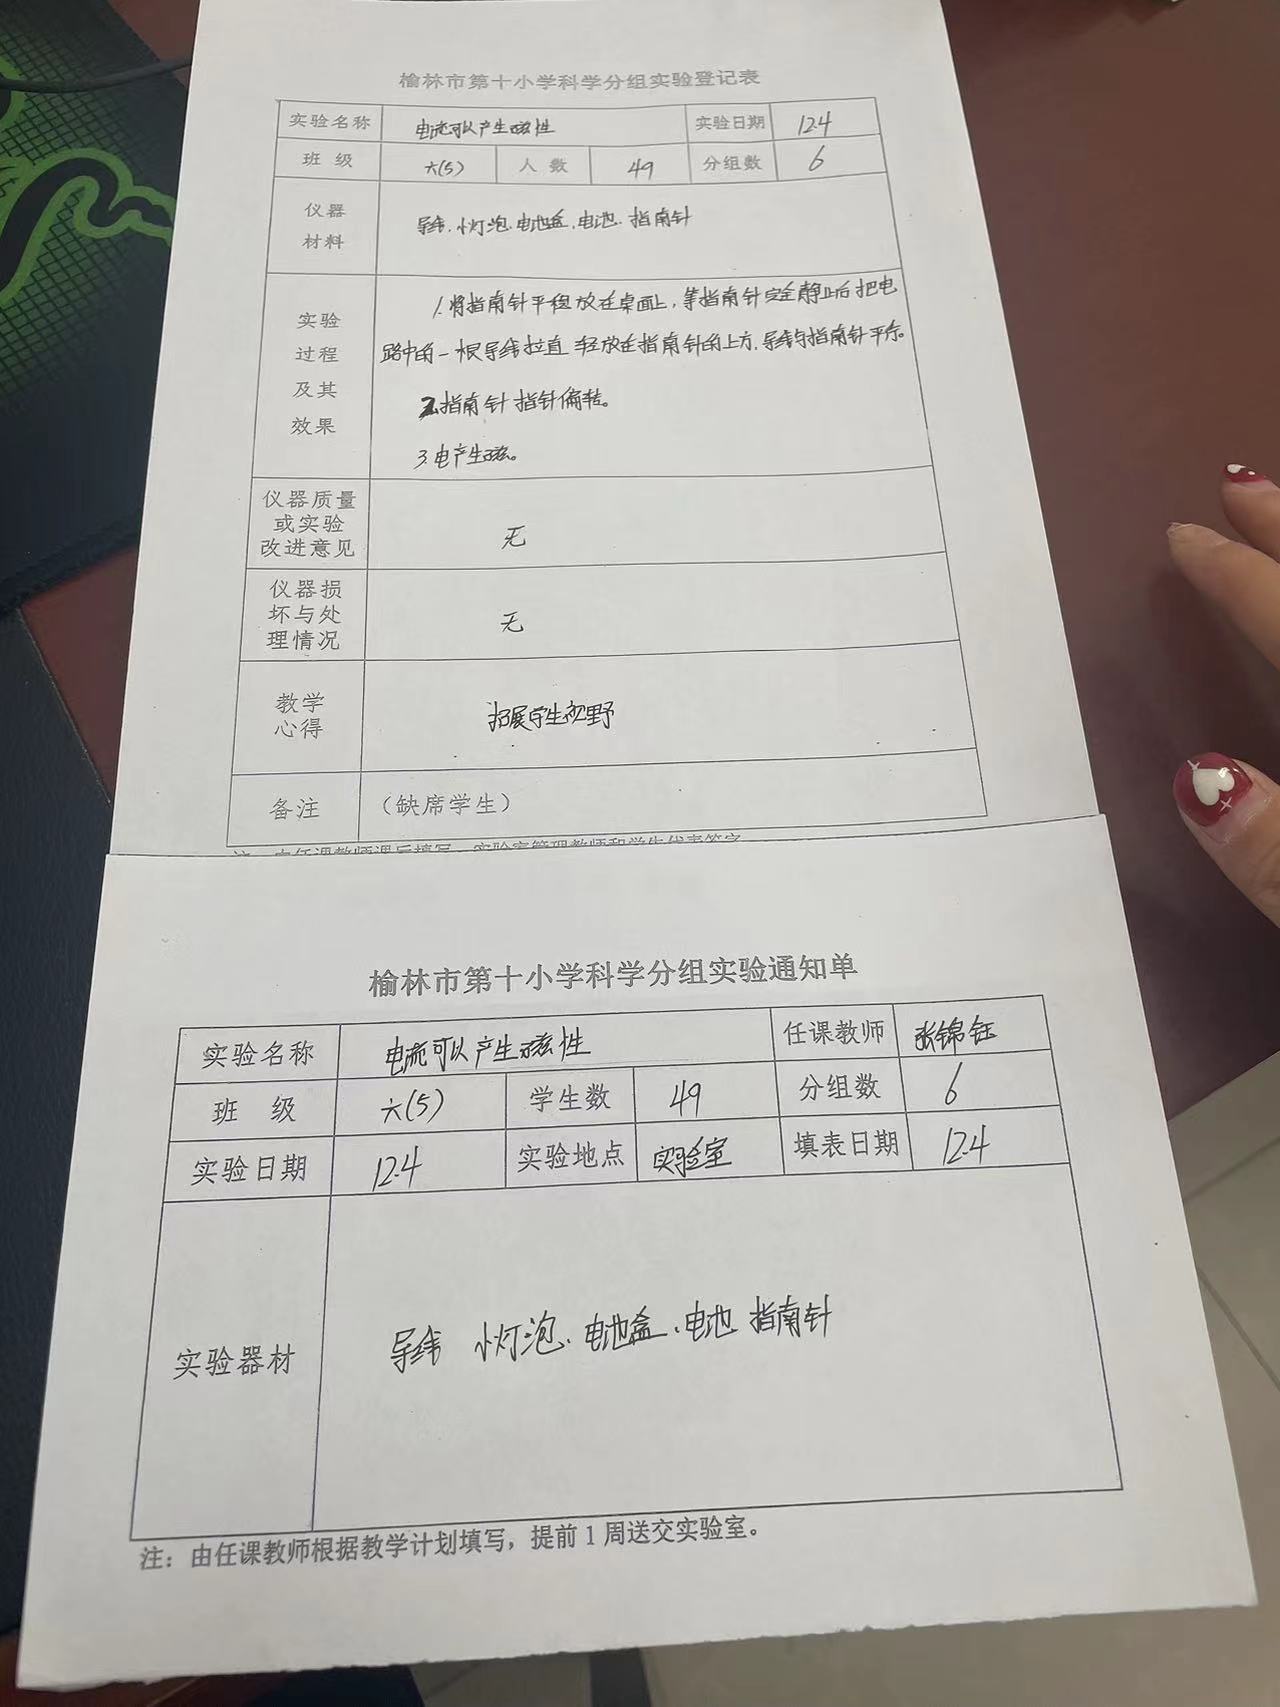 榆林市第十小学科学分组实验登记表
实验名称 电流可以产生磁性 实验日期 12.4
班 级 六(5) 人 数 49 分组数 6
仪器
材料
导线、小灯泡、电池盒、电池、指南针
实验
过程
及其
效果
1.将指南针平稳放在桌面上,等指南针完全静止后把电
路中的一根导线拉直 轻放在指南针的上方,导线与指南针平行。
2.指南针指针偏转。
3.电产生磁。
仪器质量
或实验
改进意见
无
仪器损
坏与处
理情况
无
教学
心得
拓展学生视野
备注 (缺席学生)
注:由任课教师课后填写,实验室管理教师和学生代表签字
榆林市第十小学科学分组实验通知单
实验名称 电流可以产生磁性 任课教师 张锦钰
班 级 六(5) 学生数 49 分组数 6
实验日期 12.4 实验地点 实验室 填表日期 12.4
实验器材 导线 小灯泡、电池盒、电池 指南针
注:由任课教师根据教学计划填写,提前1周送交实验室。